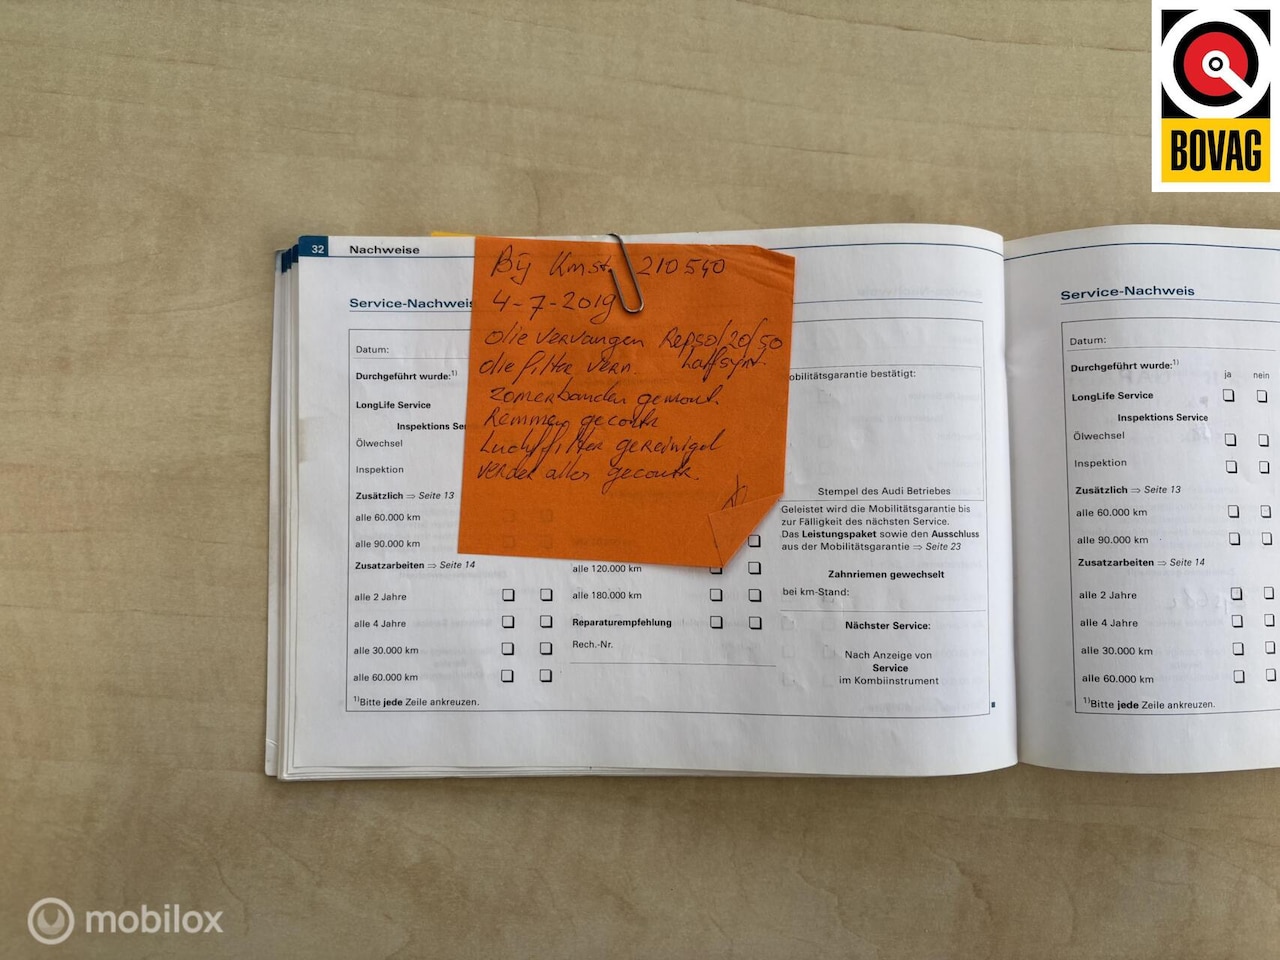 BOVAG
32 Nachweise
Service-Nachweis
Bij Kmst. 210540
4-7-2019
olie vervangen Repsol/20/50
olie filter vern. halfsynt.
Zomerbanden gemont.
Remmen gecontr
Luchtfilter gereinigd
verder alles gecontr.
Datum:
Durchgeführt wurde:1)
LongLife Service
Inspektions Ser
Ölwechsel
Inspektion
Zusätzlich ⇒ Seite 13
alle 60.000 km
alle 90.000 km
Zusatzarbeiten ⇒ Seite 14
alle 2 Jahre
alle 4 Jahre
alle 30.000 km
alle 60.000 km
1)Bitte jede Zeile ankreuzen.
alle 120.000 km
alle 180.000 km
Reparaturempfehlung
Rech.-Nr.
obilitätsgarantie bestätigt:
Stempel des Audi Betriebes
Geleistet wird die Mobilitätsgarantie bis
zur Fälligkeit des nächsten Service.
Das Leistungspaket sowie den Ausschluss
aus der Mobilitätsgarantie ⇒ Seite 23
Zahnriemen gewechselt
bei km-Stand:
Nächster Service:
Nach Anzeige von
Service
im Kombiinstrument
Service-Nachweis
Datum:
Durchgeführt wurde:1)
ja nein
LongLife Service
Inspektions Service
Ölwechsel
Inspektion
Zusätzlich ⇒ Seite 13
alle 60.000 km
alle 90.000 km
Zusatzarbeiten ⇒ Seite 14
alle 2 Jahre
alle 4 Jahre
alle 30.000 km
alle 60.000 km
1)Bitte jede Zeile ankreuzen.
mobilox